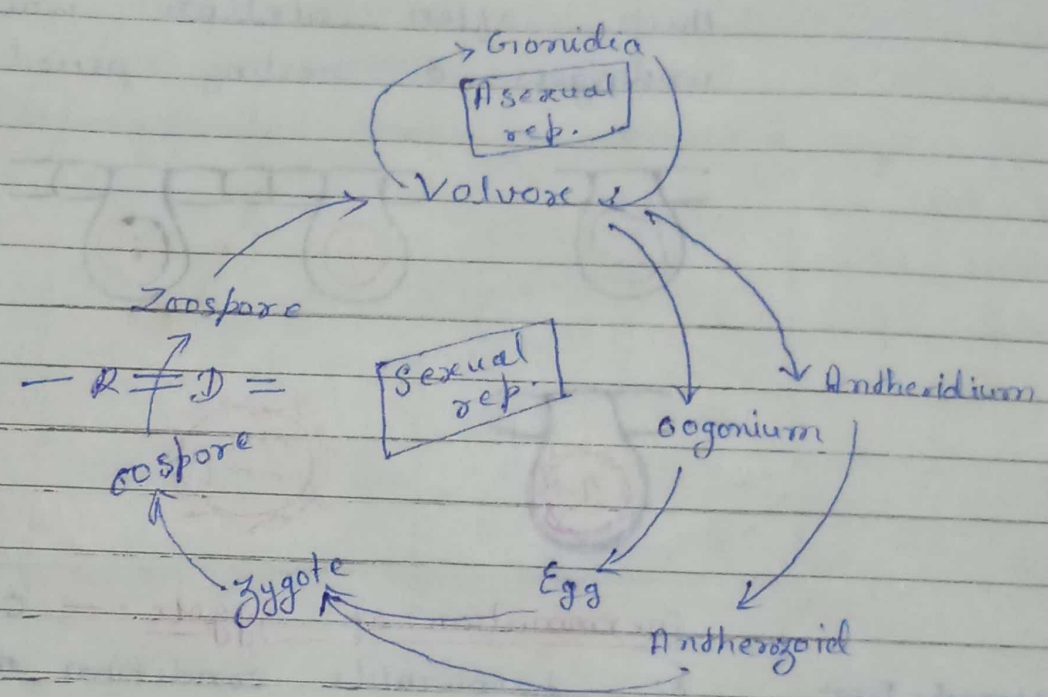 Gonidia
Asexual
rep.
Volvox
Zoospore
R D
Sexual
rep.
Antheridium
oogonium
oospore
Zygote
Egg
Antherozoid